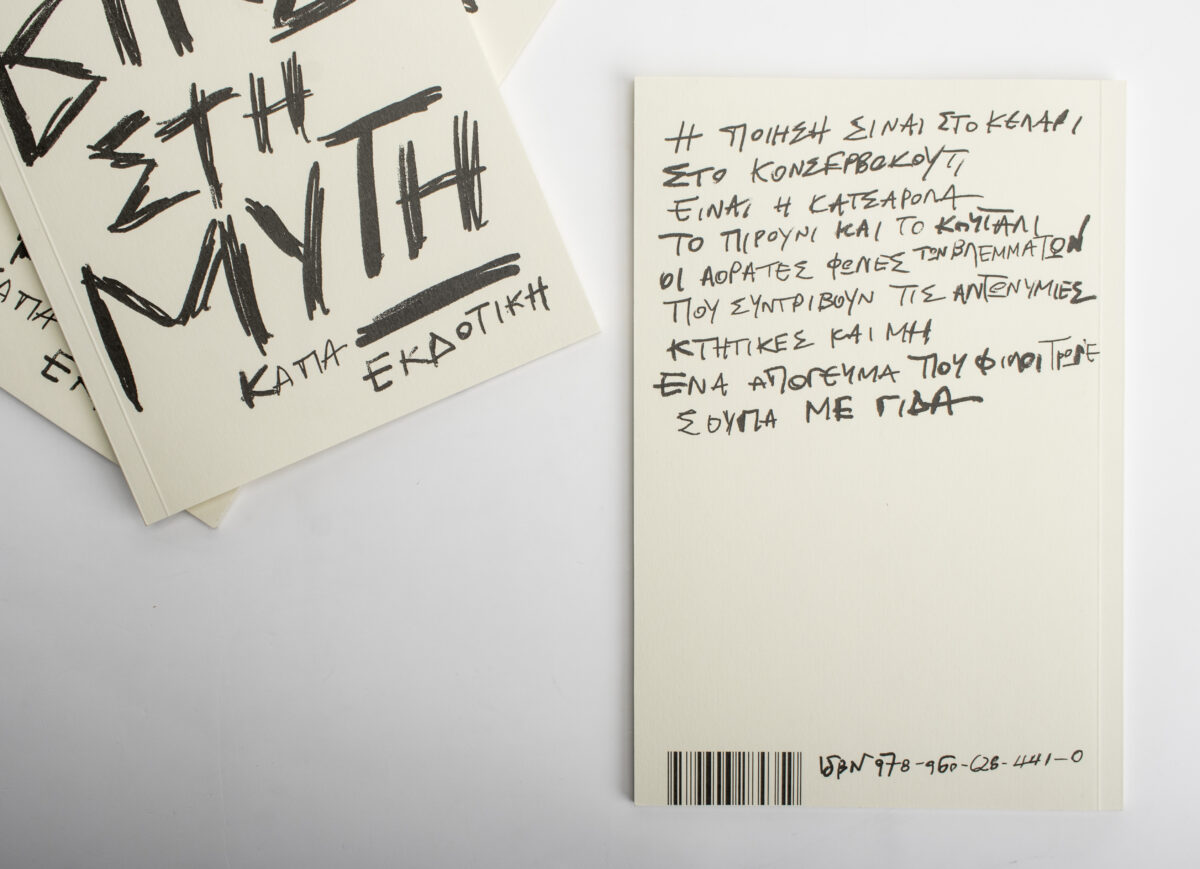 ΣΤΗ
ΜΥΤΗ
ΚΑΠΑ ΕΚΔΟΤΙΚΗ
Η ΠΟΙΗΣΗ ΕΙΝΑΙ ΣΤΟ ΚΕΛΑΡΙ
ΣΤΟ ΚΟΝΣΕΡΒΟΚΟΥΤΙ
ΕΙΝΑΙ Η ΚΑΤΣΑΡΟΛΑ
ΤΟ ΠΙΡΟΥΝΙ ΚΑΙ ΤΟ ΚΟΥΤΑΛΙ
ΟΙ ΑΟΡΑΤΕΣ ΦΩΝΕΣ ΤΩΝ ΒΛΕΜΜΑΤΩΝ
ΠΟΥ ΣΥΝΤΡΙΒΟΥΝ ΤΙΣ ΑΝΤΩΝΥΜΙΕΣ
ΚΤΗΤΙΚΕΣ ΚΑΙ ΜΗ
ΕΝΑ ΑΠΟΓΕΥΜΑ ΠΟΥ ΦΙΛΟΙ ΤΡΩΝΕ
ΣΟΥΠΑ ΜΕ ΓΙΔΑ
ISBN 978-960-628-441-0